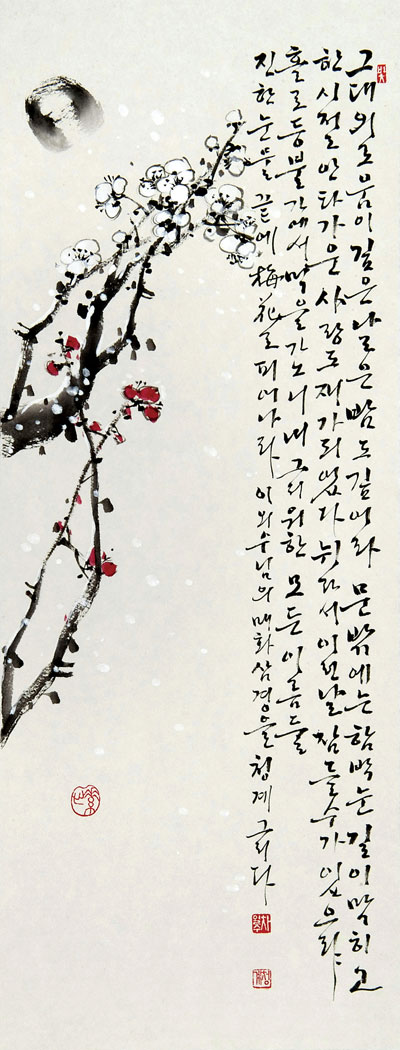 그대 외로움이 깊은 날은 밤도 깊어라 문밖에는 함박눈 길이 막히고
한 시절 안타가운 사랑도 재가 되었다 뉘라서 이런 날 잠들 수가 있으랴
홀로 등불가에서 먹을 가노니 내 그리워한 모든 이름들
진한 눈물 끝에 梅花로 피어나라 이외수님의 매화삼경을 청계 그리다